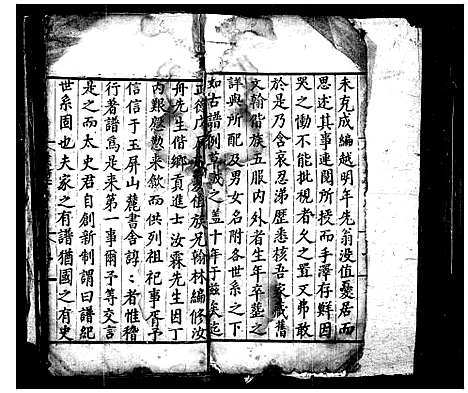 未克成編越明年先翁没值憂居而
思述其事連閱所授而手澤存鮮因
哭之慟不能批視者久之置又弗敢
於是乃含哀忍涕歷悉核吾家藏舊
文翰偕族五服内外者生年卒塟之
詳與所配及男女名附各世系之下
如古譜例草成之盖十年于兹矣迄
正德戊辰夏值族兄翰林編修汝
舟先生偕鄉貢進士汝霖先生因丁
内艱懸勅来歙而供列祖祀事胥予
信信于玉屏山麓書舍諄諄者惟稽
行者譜爲是来第一事爾予等交言
是之而太史君自創新制謂曰譜紀
世系固也夫家之有譜猶國之有史